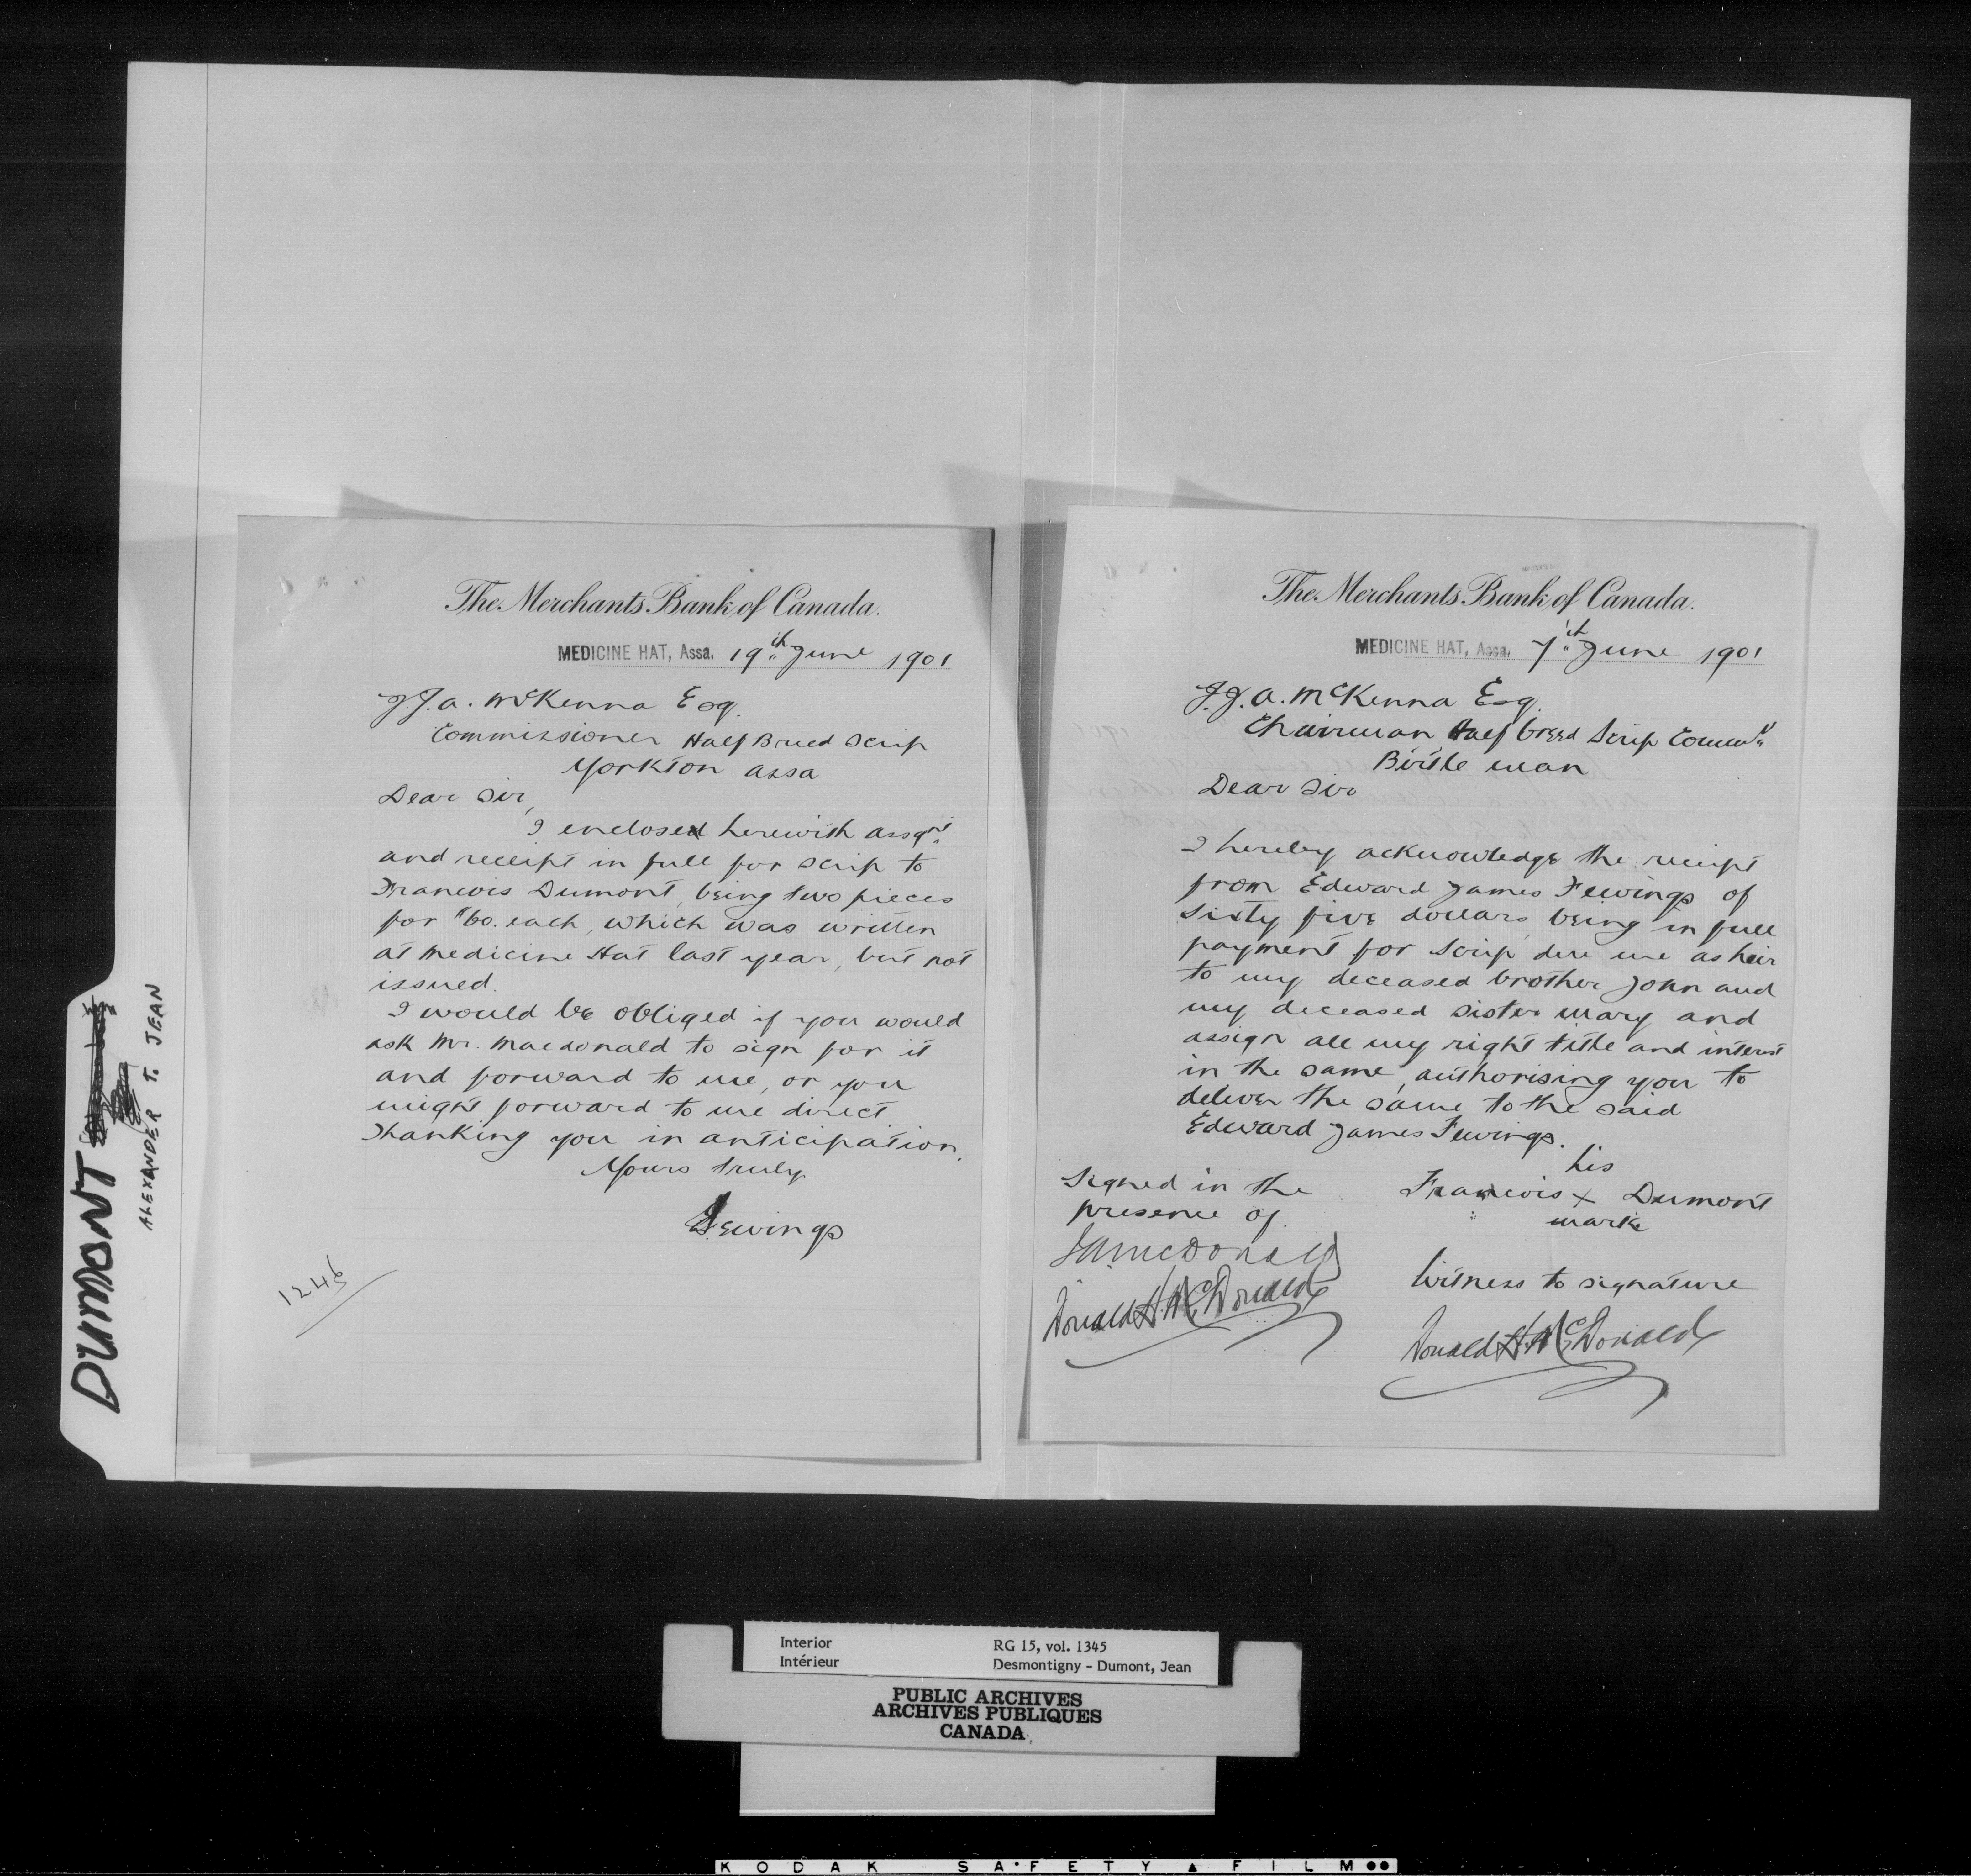 DUMONT
ALEXANDER T. JEAN
The Merchants Bank of Canada.
MEDICINE HAT, Assa. 19th June 1901
J.J.A. McKenna Esq.
Commissioner Half Breed Scrip
Yorkton Assa
Dear Sir,
I enclosed herewith assgnt
and receipt in full for scrip to
Francois Dumont, being two pieces
for $60. each, which was written
at Medicine Hat last year, but not
issued.
I would be obliged if you would
ask Mr. Macdonald to sign for it
and forward to me, or you
might forward to me direct
Thanking you in anticipation.
Yours truly
Fewings
1246
The Merchants Bank of Canada.
MEDICINE HAT, Assa. 7th June 1901
J.J.A. McKenna Esq.
Chairman Half breed Scrip Commn
Birtle Man
Dear Sir
I hereby acknowledge the receipt
from Edward James Fewings of
sixty five dollars, being in full
payment for scrip due me as heir
to my deceased brother John and
my deceased sister Mary and
assign all my right title and interest
in the same, authorising you to
deliver the same to the said
Edward James Fewings.
his
Signed in the Francois x Dumont
presence of mark
McDonald
Donald H. McDonald
Witness to signature
Donald H. McDonald
Interior RG 15, vol. 1345
Intérieur Desmontigny - Dumont, Jean
PUBLIC ARCHIVES
ARCHIVES PUBLIQUES
CANADA
KODAK SAFETY FILM